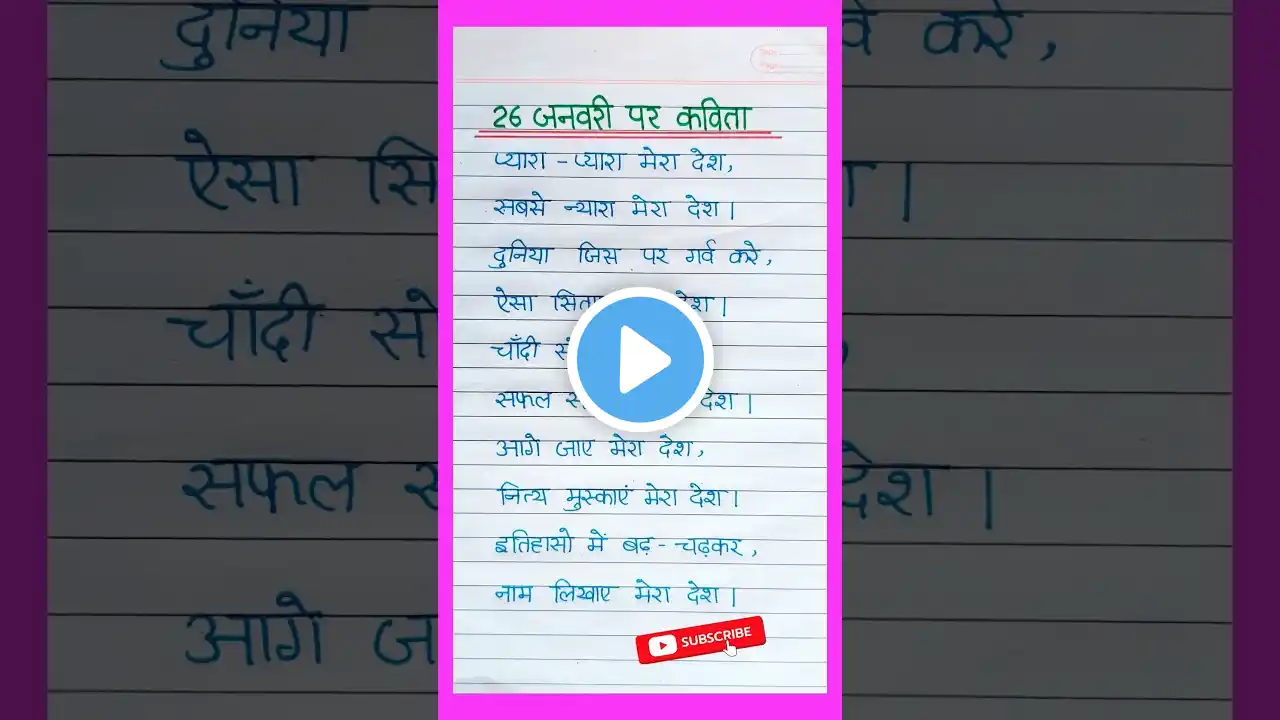 26 जनवरी पर कविता
प्यारा - प्यारा मेरा देश,
सबसे न्यारा मेरा देश।
दुनिया जिस पर गर्व करे,
ऐसा देश।
चाँदी
सफल देश।
आगे जाए मेरा देश,
नित्य मुस्काएं मेरा देश।
इतिहासो में बढ़ - चढ़कर,
नाम लिखाए मेरा देश।
SUBSCRIBE
दुनिया
करे,
ऐसा
चाँदी
सफल
देश।
आगे